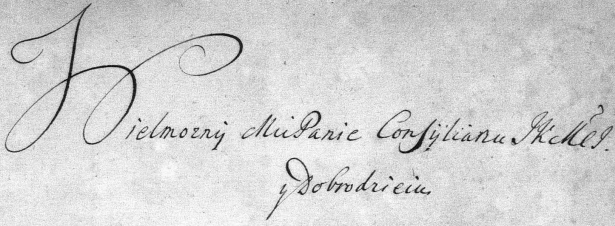 Wielmozny Mci Panie Consyliarzu JKMCI.
y Dobrodzieiu